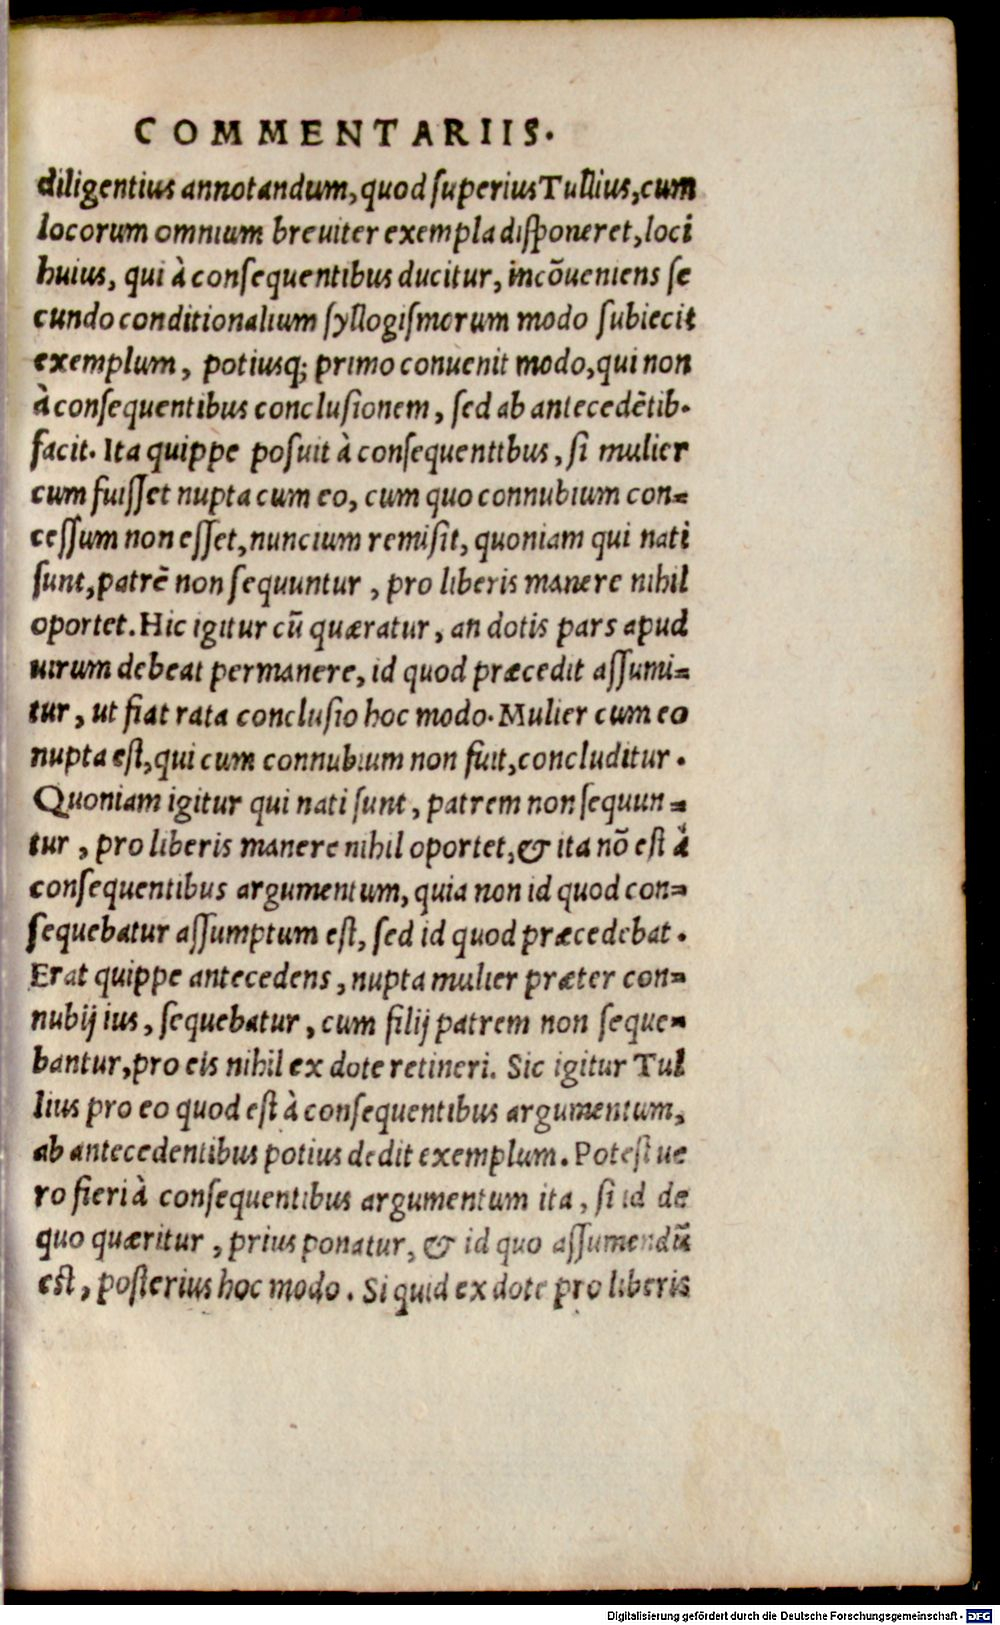 COMMENTARIIS.
diligentius annotandum, quod superius Tullius, cum
locorum omnium breuiter exempla disponeret, loci
huius, qui à consequentibus ducitur, incõueniens se
cundo conditionalium syllogismorum modo subiecit
exemplum, potiusq; primo conuenit modo, qui non
à consequentibus conclusionem, sed ab antecedẽtib.
facit. Ita quippe posuit à consequentibus, si mulier
cum fuisset nupta cum eo, cum quo connubium con-
cessum non esset, nuncium remisit, quoniam qui nati
sunt, patrẽ non sequuntur, pro liberis manere nihil
oportet. Hic igitur cũ quæratur, an dotis pars apud
uirum debeat permanere, id quod præcedit assumi-
tur, ut fiat rata conclusio hoc modo. Mulier cum eo
nupta est, qui cum connubium non fuit, concluditur.
Quoniam igitur qui nati sunt, patrem non sequun-
tur, pro liberis manere nihil oportet, & ita nõ est à
consequentibus argumentum, quia non id quod con-
sequebatur assumptum est, sed id quod præcedebat.
Erat quippe antecedens, nupta mulier præter con-
nubij ius, sequebatur, cum filij patrem non seque-
bantur, pro eis nihil ex dote retineri. Sic igitur Tul
lius pro eo quod est à consequentibus argumentum,
ab antecedentibus potius dedit exemplum. Potest ue
ro fieri à consequentibus argumentum ita, si id de
quo quæritur, prius ponatur, & id quo assumendũ
est, posterius hoc modo. Si quid ex dote pro liberis
Digitalisierung gefördert durch die Deutsche Forschungsgemeinschaft - DFG